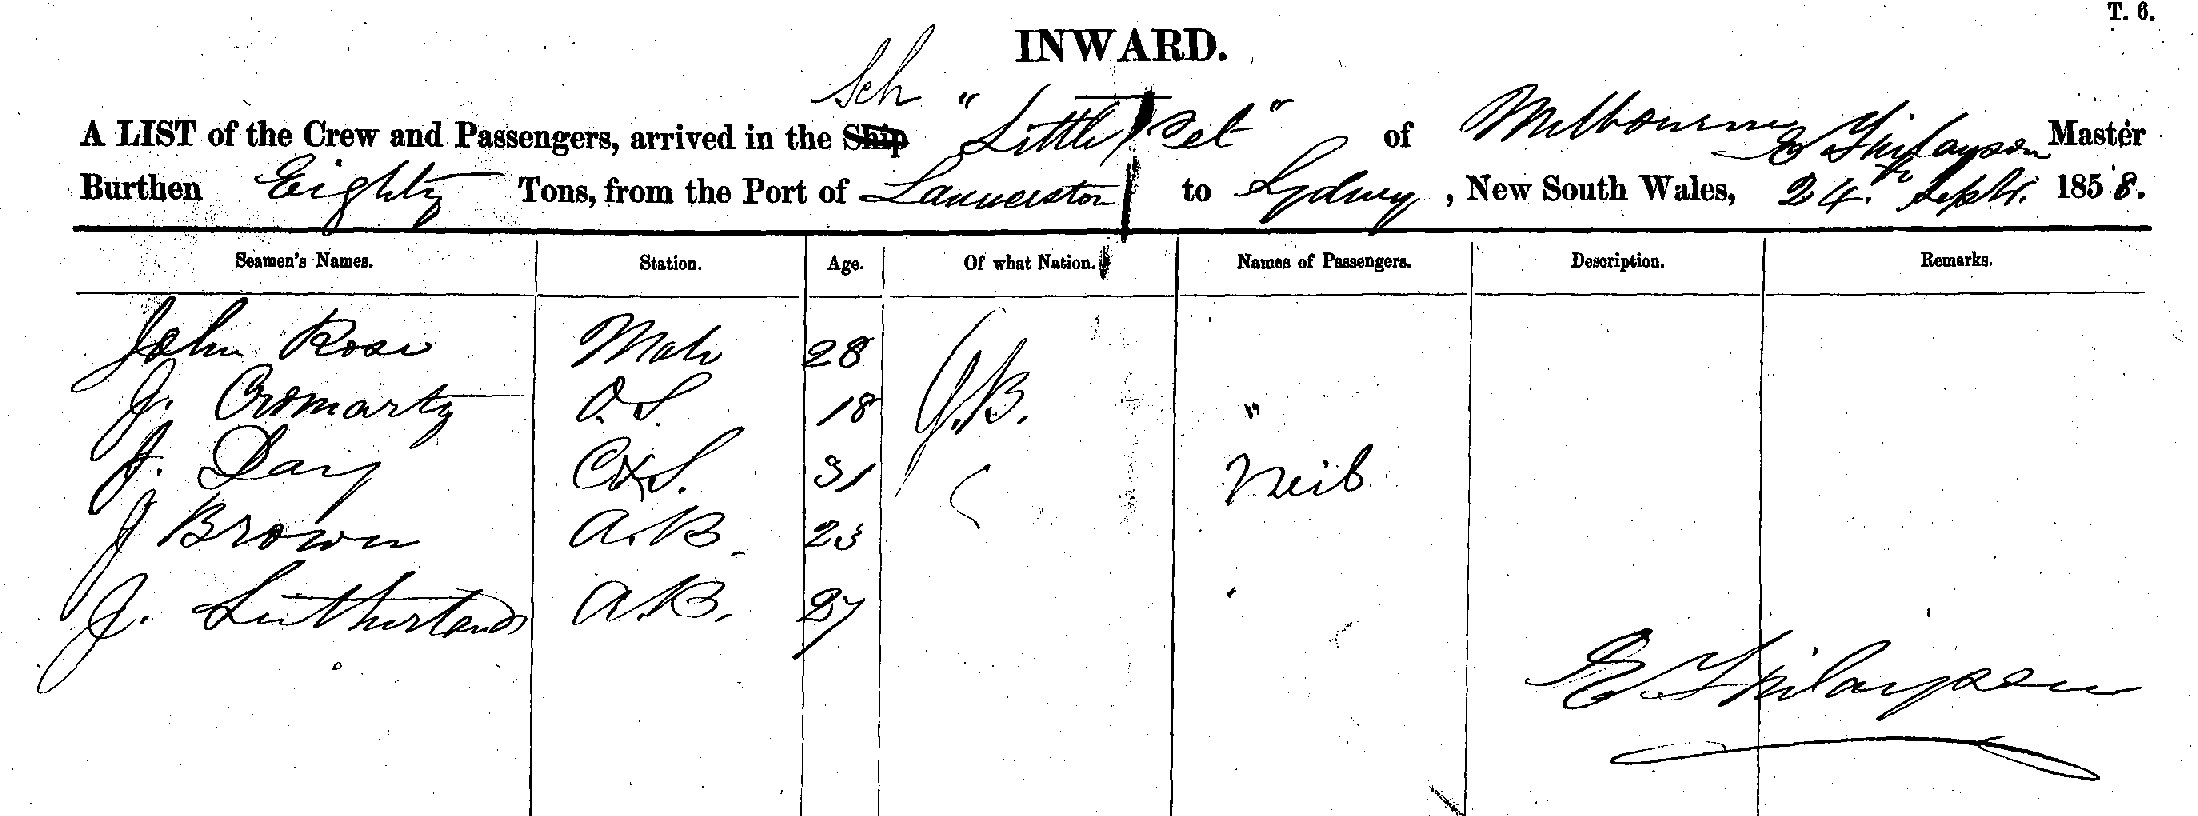 T. 6.
INWARD.
Sch
A LIST of the Crew and Passengers, arrived in the Ship "Little Pet" of Melbourne E Finlayson Master
Burthen Eighty Tons, from the Port of Launceston to Sydney, New South Wales, 24th Septr. 1858.
Seamen's Names. Station. Age. Of what Nation. Names of Passengers. Description. Remarks.
John Rose Mate 28
J. Cromarty O.S. 18 G.B. "
J. Day C&S. 31 Neib
J Brown A.B. 23
J. Sutherland A.B. 27
E Finlayson